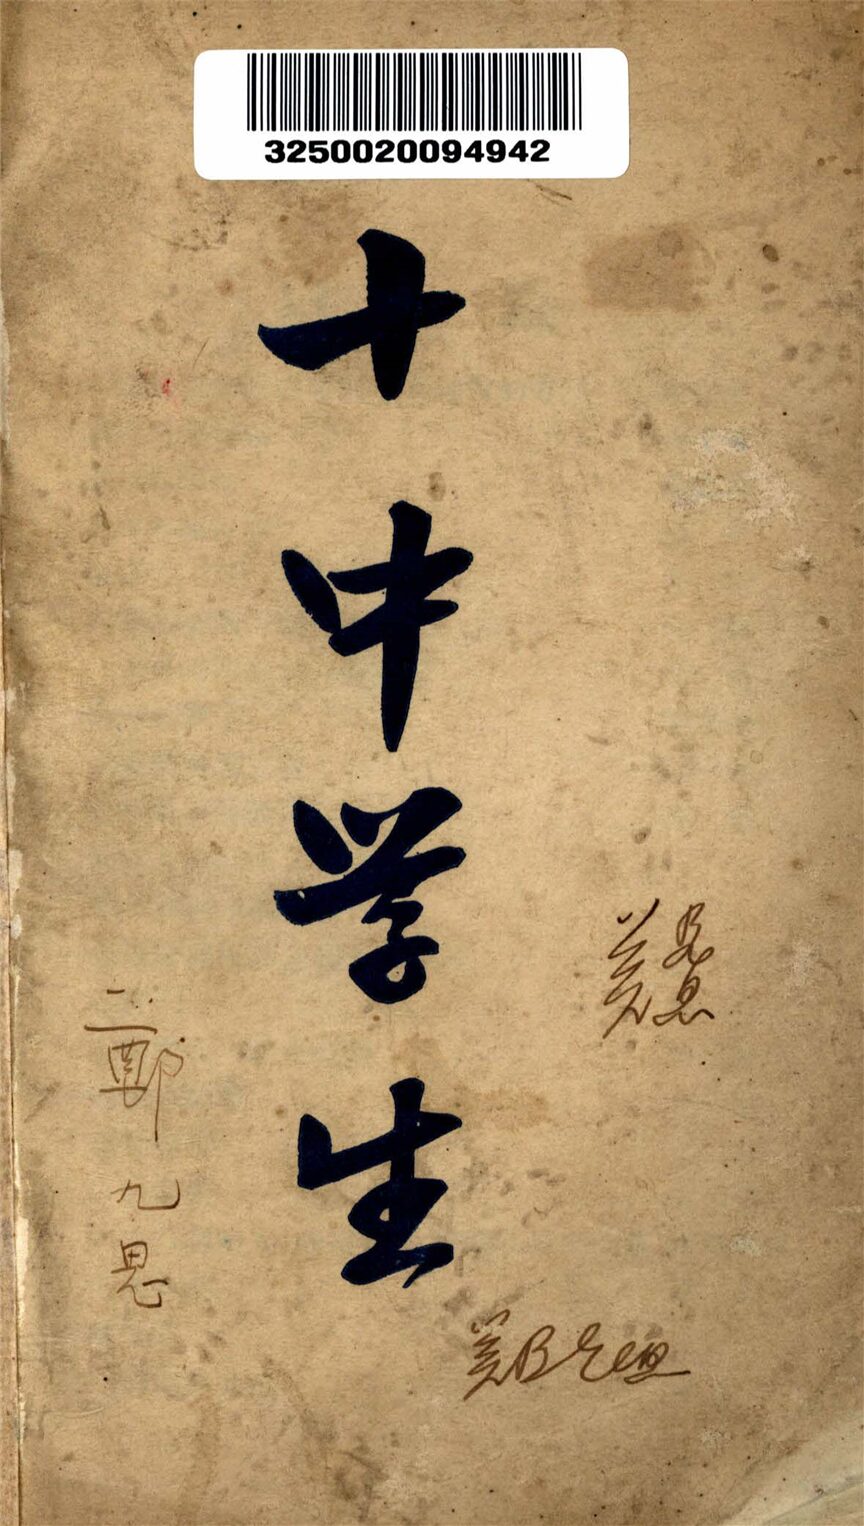 3250020094942
十中学生
鄭九思